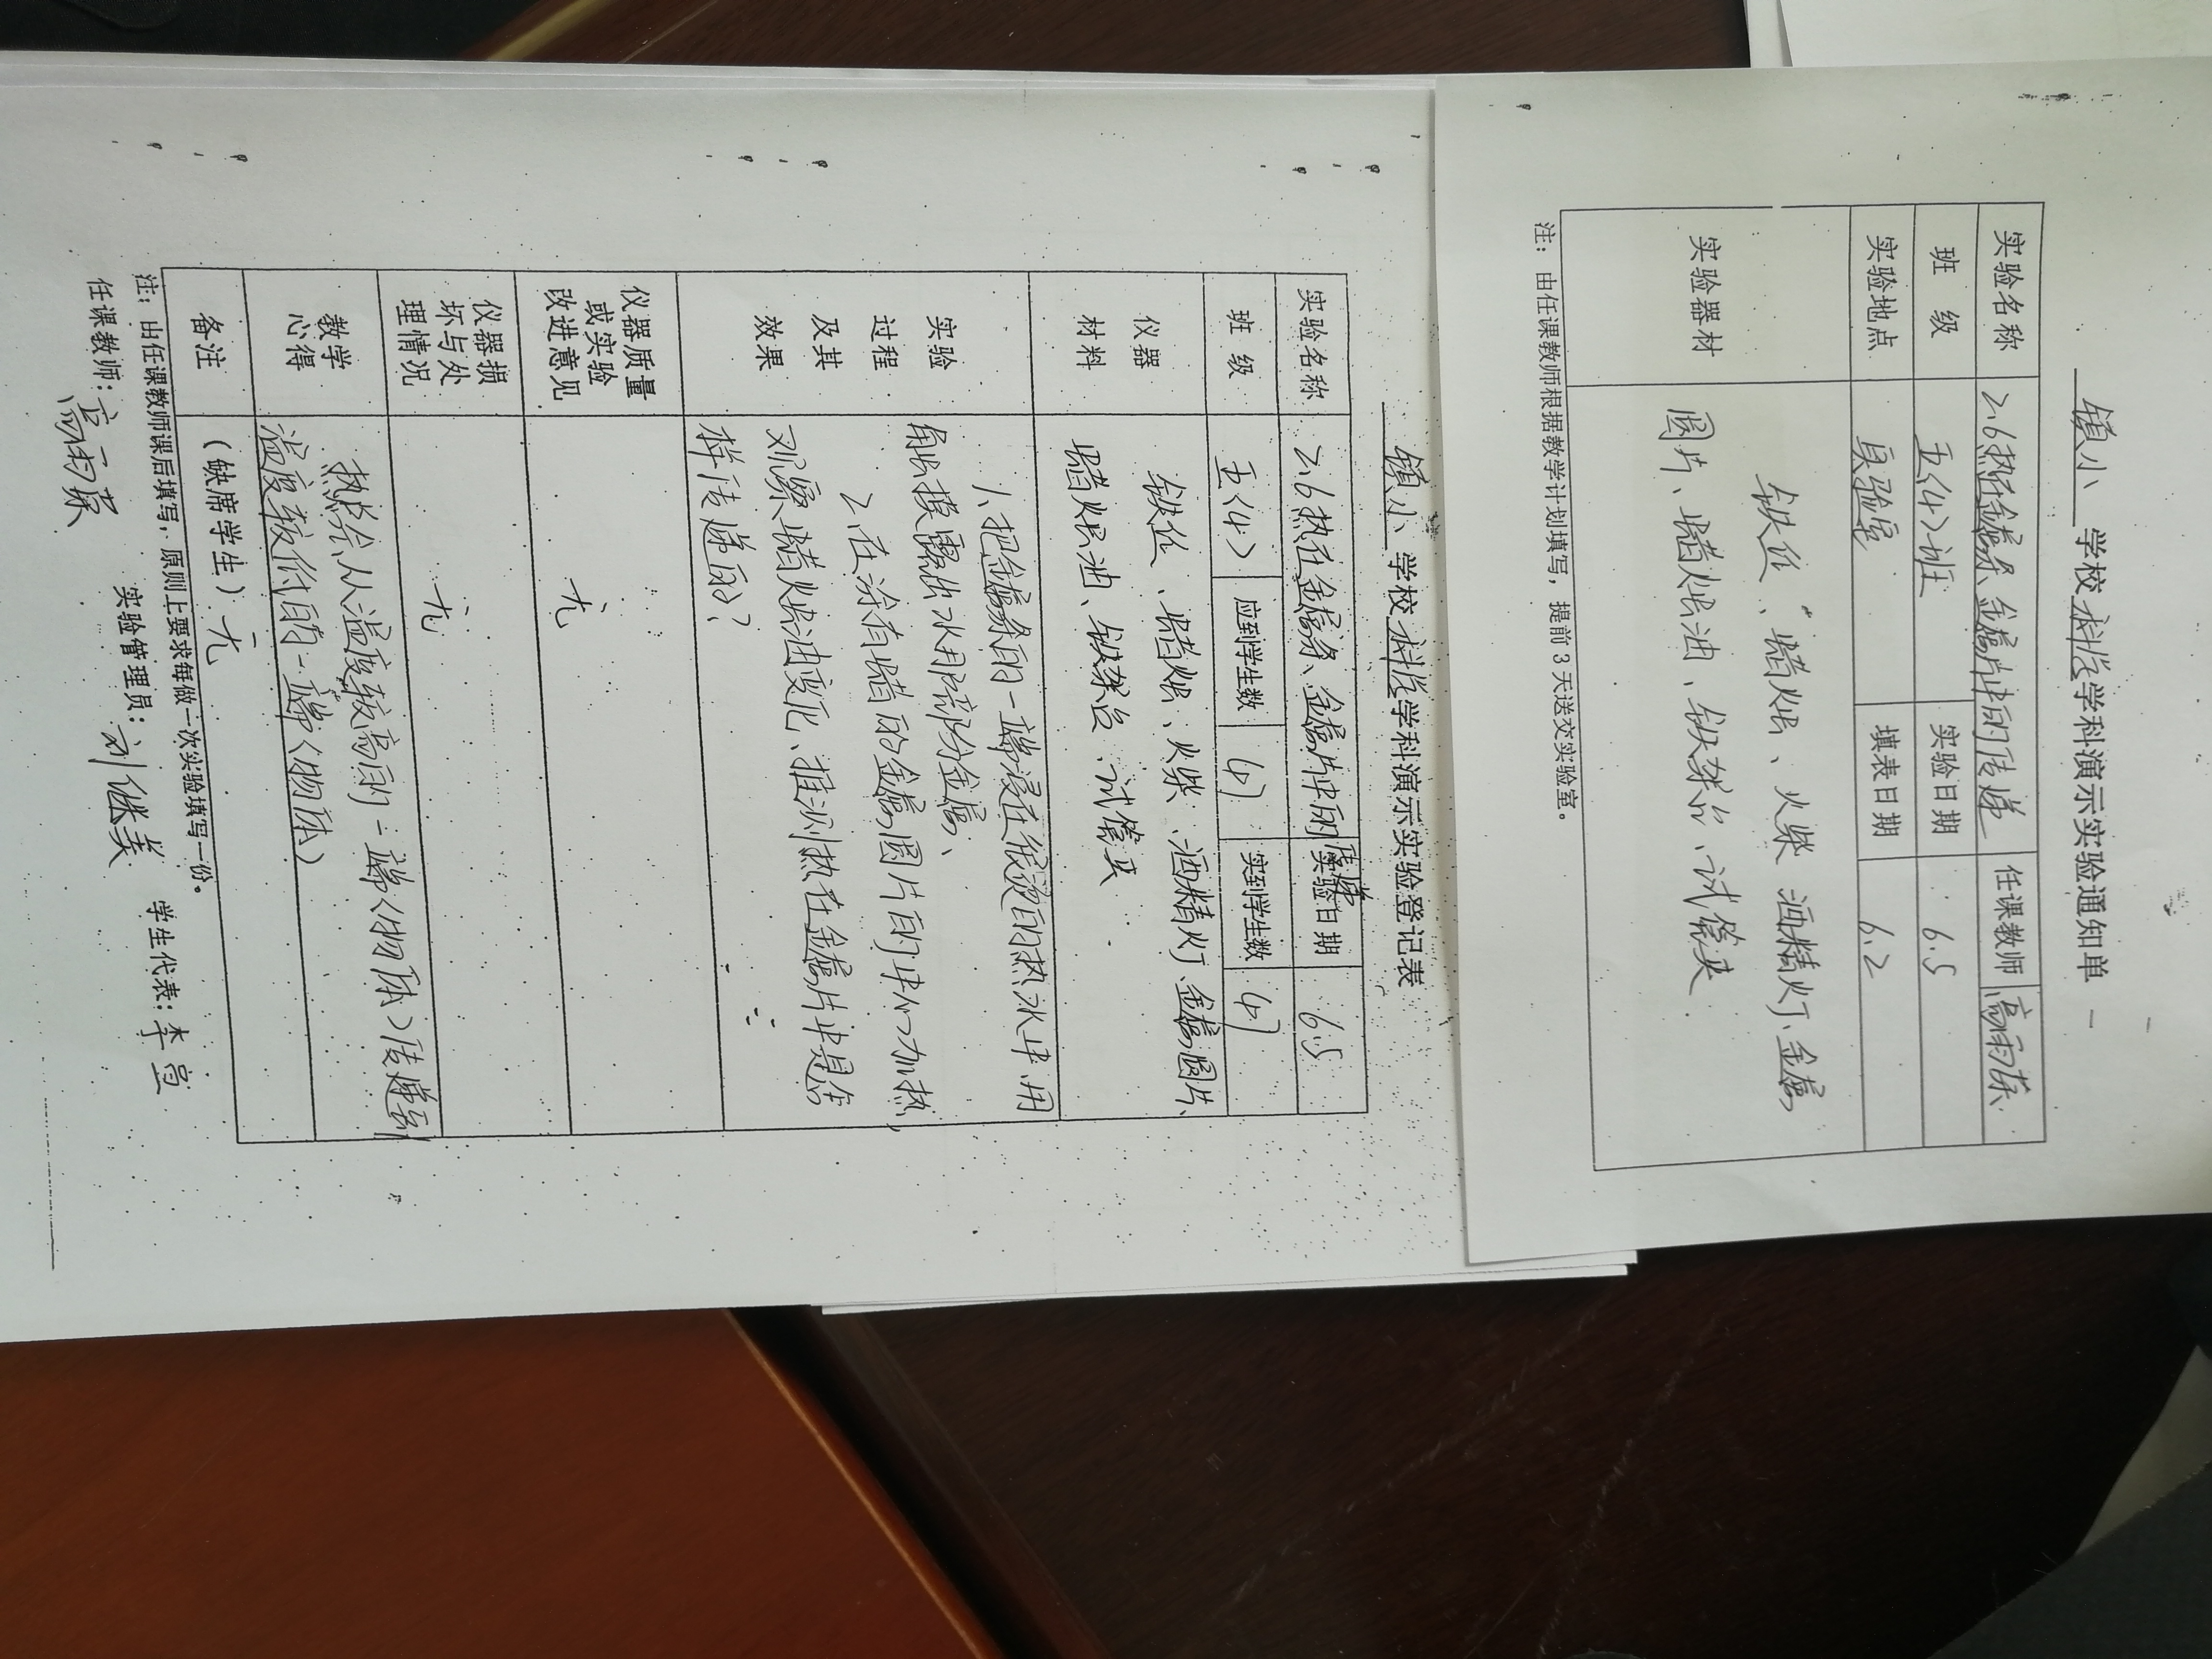 镇小 学校科学学科演示实验通知单
实验名称 2.6热在金属条、金属片中的传递 任课教师
班 级 五(4)班 实验日期 6.5
实验地点 实验室 填表日期 6.2
实验器材
铁丝、蜡烛、火柴、酒精灯、金属
圆片、蜡烛油、铁架台、试管夹
注：由任课教师根据教学计划填写，提前3天送交实验室。
镇小 学校科学学科演示实验登记表
实验名称 2.6热在金属条、金属片中的传递 实验日期 6.5
班 级 五(4) 应到学生数 47 实到学生数 47
仪器
材料
铁丝、蜡烛、火柴、酒精灯、金属圆片、
蜡烛油、铁架台、试管夹
实验
过程
及其
效果
1、把金属条的一端浸在很烫的热水中,用
触摸露出水用部分金属、
2、在涂有蜡的金属圆片的中心加热,
观察蜡烛油变化、推测热在金属片中是怎
样传递的?
仪器质量
或实验
改进意见
无
仪器损
坏与处
理情况
无
教学
心得
热总会从温度较高的一端(物体)传递到
温度较低的一端(物体)
备注 (缺席学生) 无
注：由任课教师课后填写，原则上要求每做一次实验填写一份。
任课教师： 实验管理员： 学生代表：